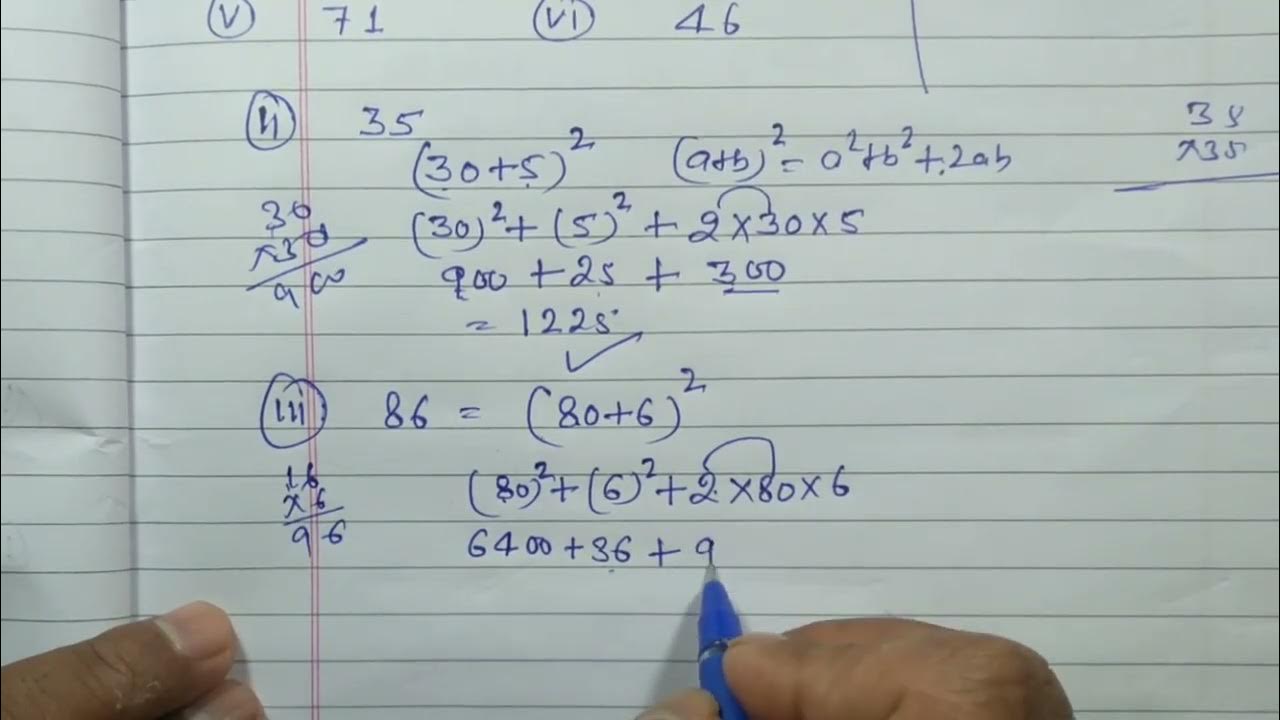 (v) 71 (vi) 46
(ii) 35
(30+5)² (a+b)² = a²+b²+2ab
(30)² + (5)² + 2×30×5
900 + 25 + 300
= 1225
30
×30
900
35
×35
(iii) 86 = (80+6)²
(80)²+(6)²+2×80×6
6400+36+9
16
×6
96